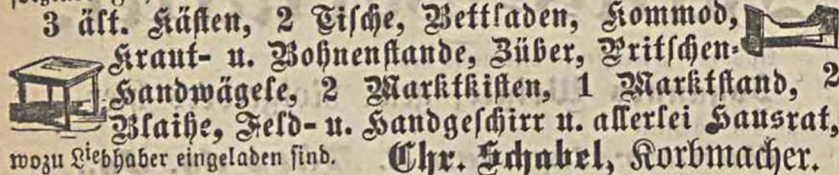 3 ält. Kästen, 2 Tische, Bettladen, Kommod,
Kraut- u. Bohnenstande, Züber, Pritschen-
Handwägele, 2 Marktkisten, 1 Marktstand, 2
Blaihe, Feld- u. Handgeschirr u. allerlei Hausrat,
wozu Liebhaber eingeladen sind. Chr. Schabel, Korbmacher.